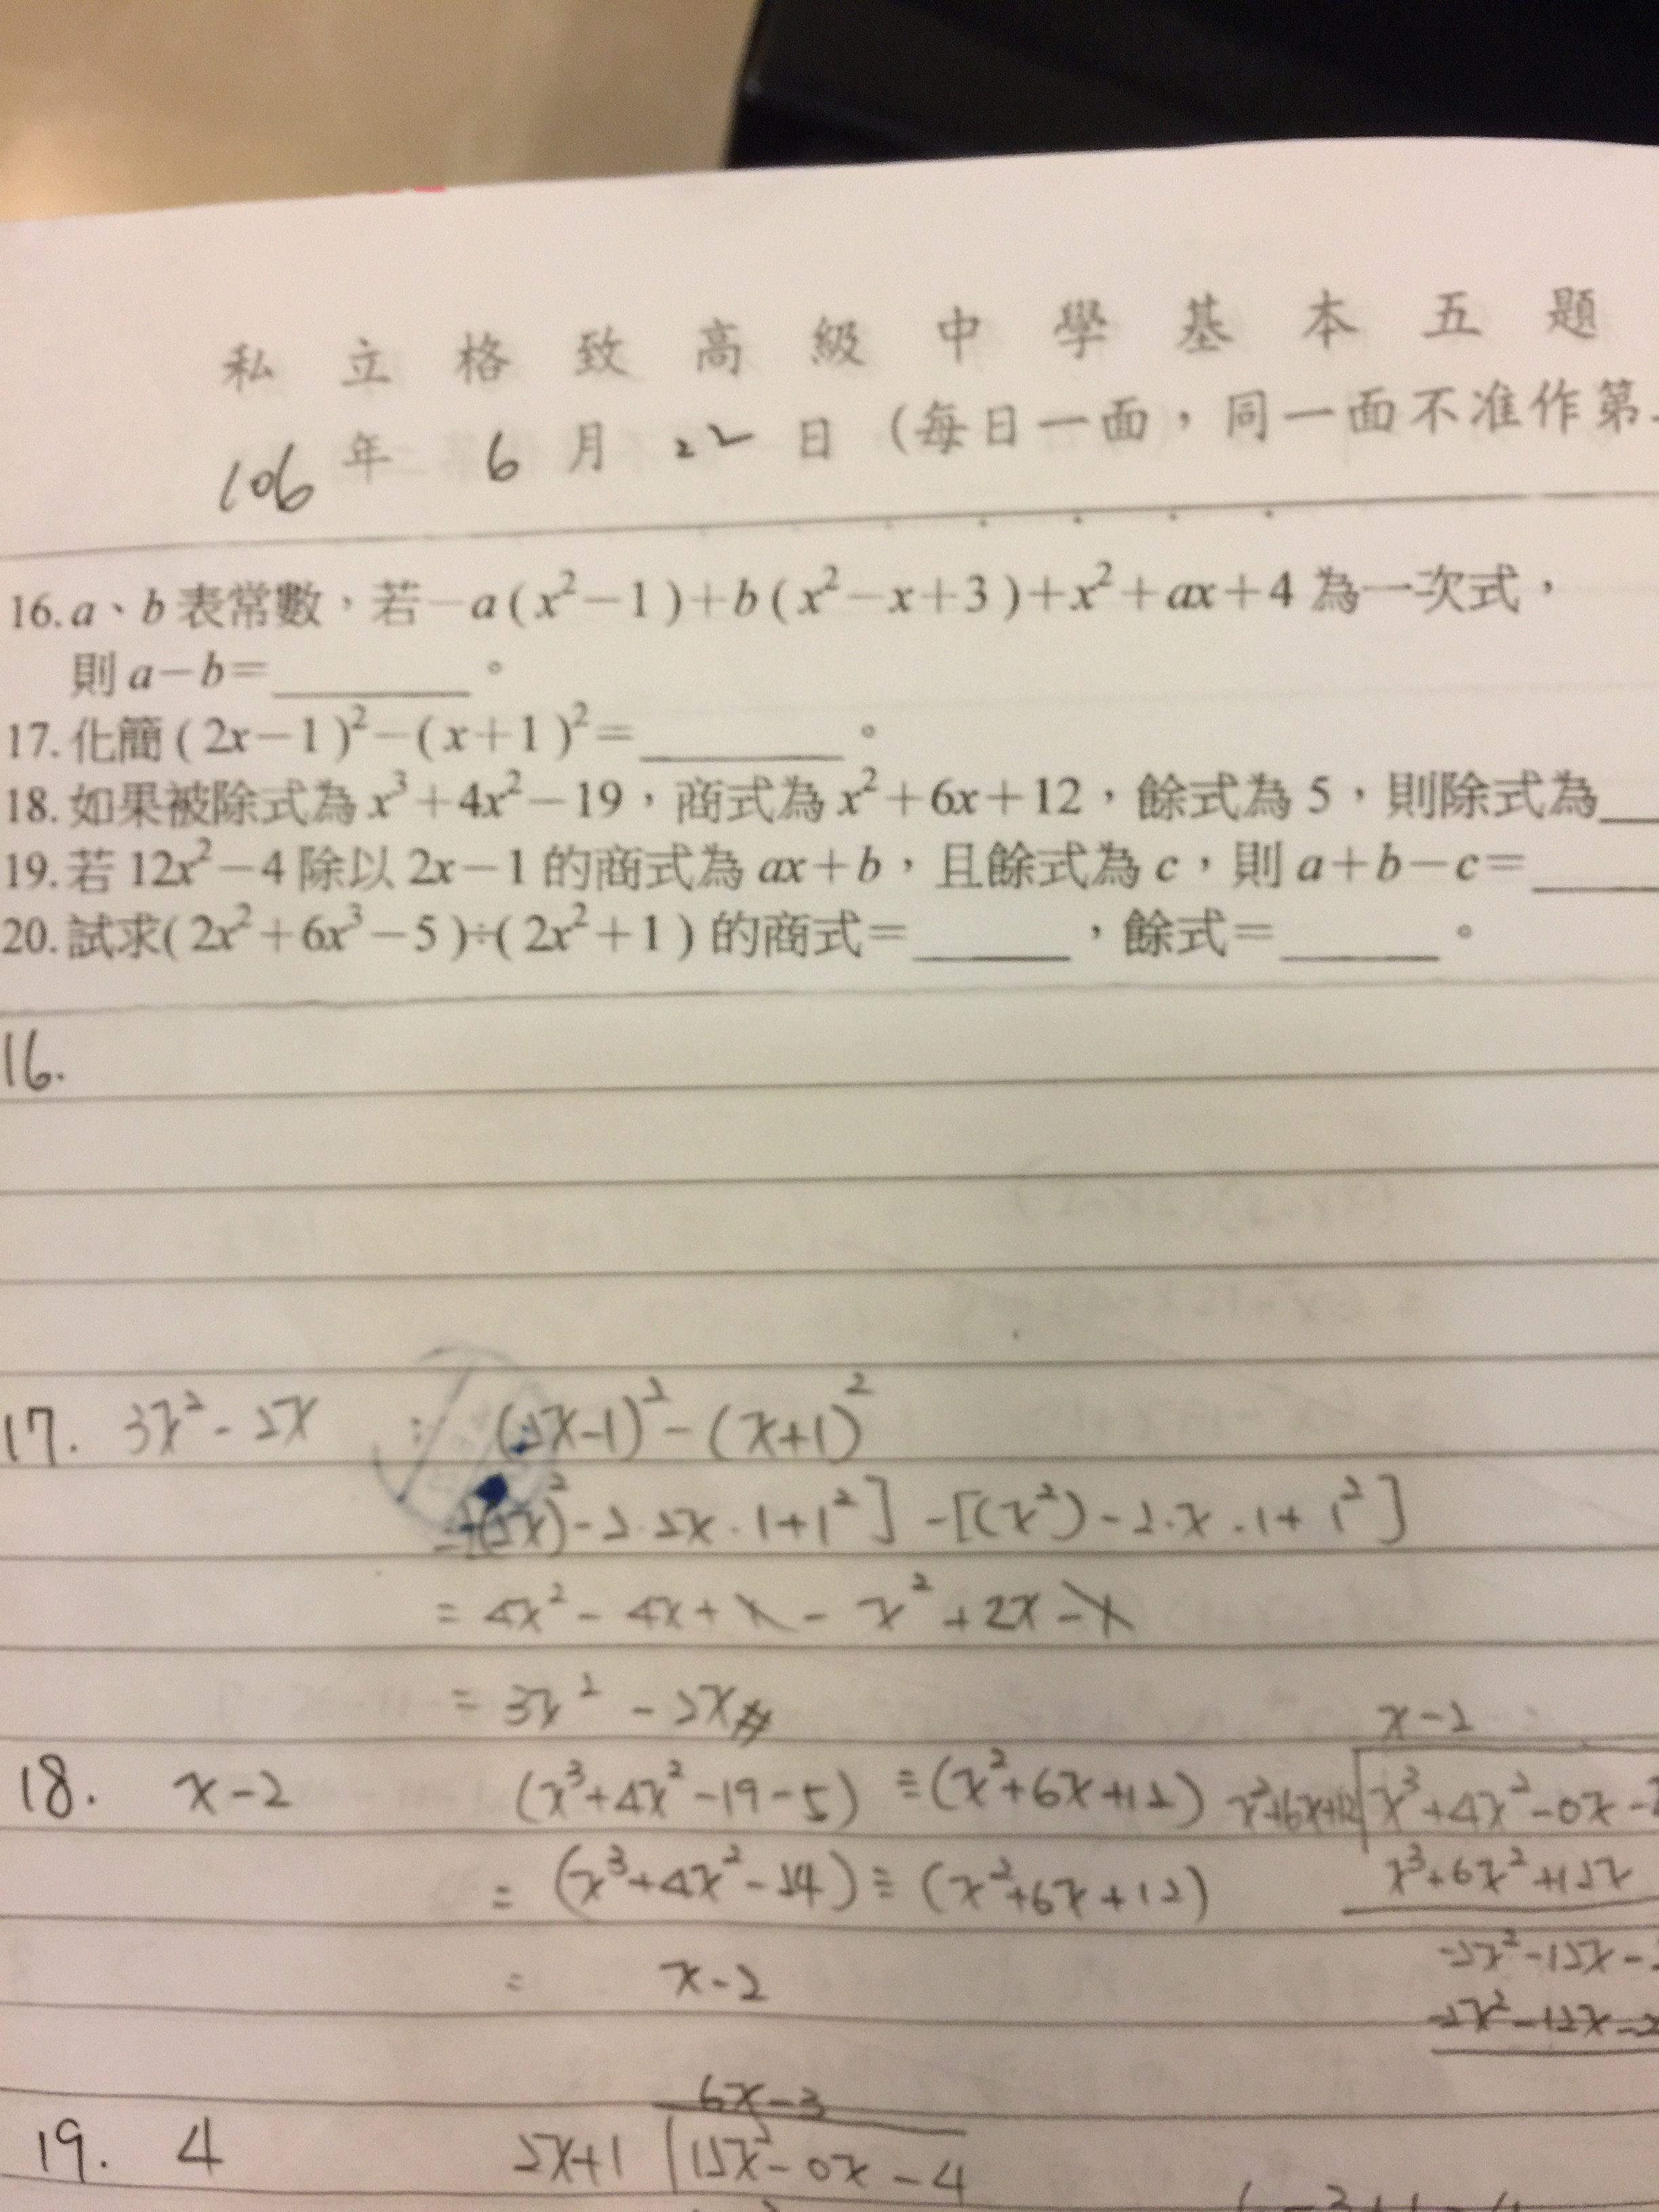 私立格致高級中學基本五題
106 年 6 月 22 日（每日一面，同一面不准作第
16. a、b 表常數，若－a(x²－1)＋b(x²－x＋3)＋x²＋ax＋4 為一次式，
則 a－b＝______。
17. 化簡(2x－1)²－(x＋1)²＝______。
18. 如果被除式為 x³＋4x²－19，商式為 x²＋6x＋12，餘式為 5，則除式為__
19. 若 12x²－4 除以 2x－1 的商式為 ax＋b，且餘式為 c，則 a＋b－c＝___
20. 試求(2x²＋6x³－5)÷(2x²＋1) 的商式＝_____，餘式＝_____。
16.
17. 3x²-2x : (2x-1)²-(x+1)²
(2x)²-2·2x·1+1²]-[(x²)-2·x·1+1²]
= 4x²-4x+1-x²+2x-1
= 3x²-2x#
x-2
18. x-2 (x³+4x²-19-5)÷(x²+6x+12) x²+6x+12 x³+4x²-0x-2
= (x³+4x²-24)÷(x²+6x+12) x³+6x²+12x
-2x²-12x-
= x-2
-2x²-12x-2
6x-3
19. 4 2x+1 12x²-0x-4